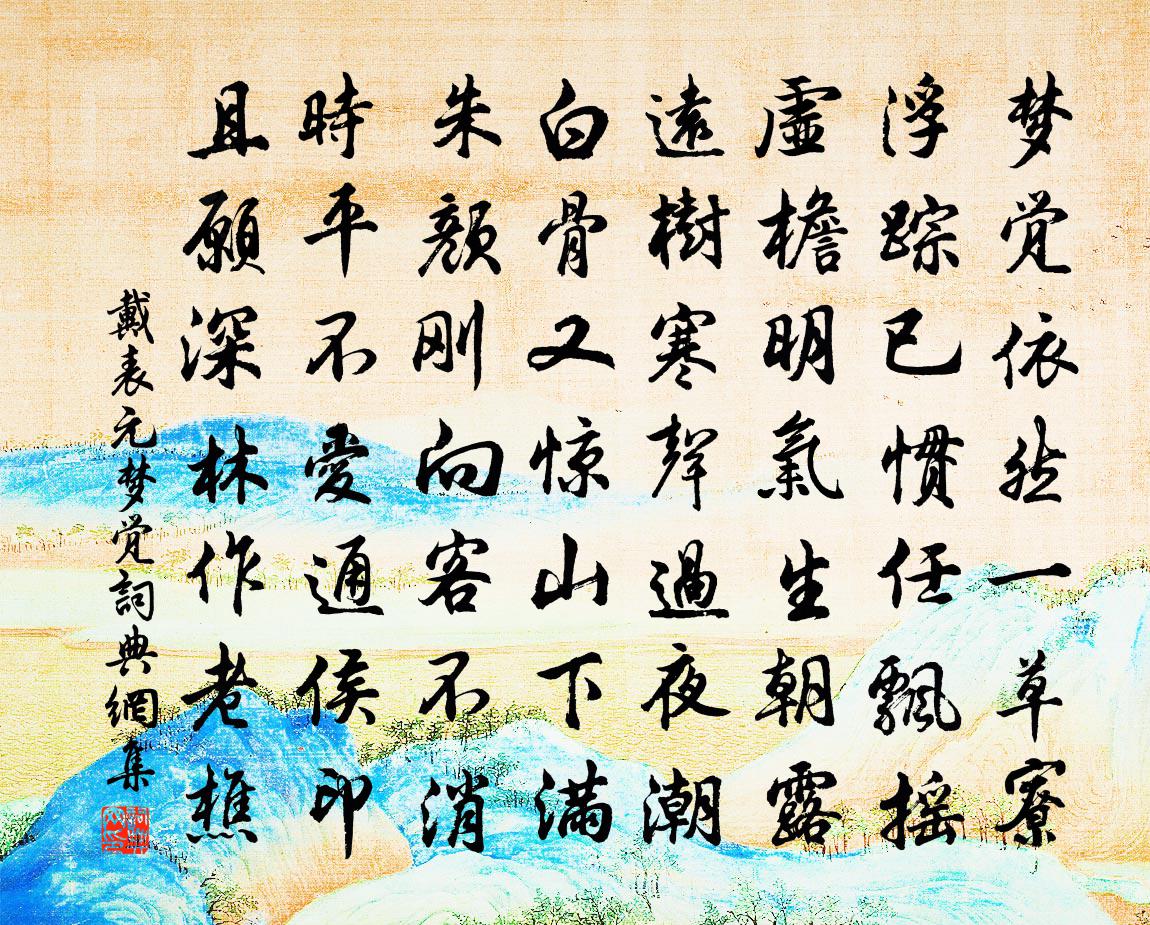 梦觉依然一草寮
浮踪已惯任飘摇
虚檐明氣生朝露
遠樹寒聲過夜潮
白骨又惊山下满
朱颜刚向客不消
時平不愛通侯印
且願深林作老樵
戴表元梦觉詞典網集